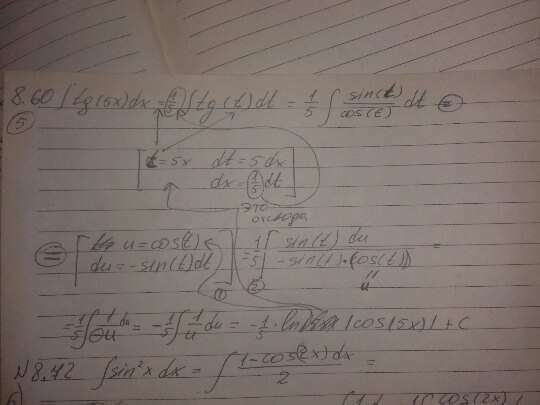 8.60 ∫ tg(5x)dx = 1/5 ∫ tg(t)dt = 1/5 ∫ sin(t)/cos(t) dt =
5
[t = 5x dt = 5dx
dx = 1/5 dt]
это
отсюда
= [u = cos(t)
du = -sin(t)dt] 1
= 1/5 ∫ sin(t) du / -sin(t)·(cos(t)) =
2
u
= 1/5 ∫ 1/-u du = -1/5 ∫ 1/u du = -1/5 · ln |cos(5x)| + C
N 8.42 ∫ sin²x dx = ∫ (1-cos(2x))dx / 2 =
6)